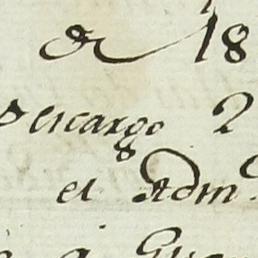 de 18
descargo 2
el Adm.